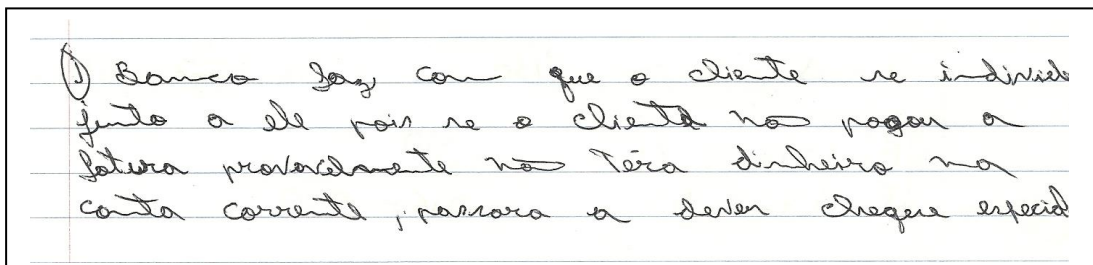 ① Banco faz com que o cliente se individe
junto a ele pois se o cliente não pagou a
fatura provavelmente não Téra dinheiro na
conta corrente, passara a dever cheque especial